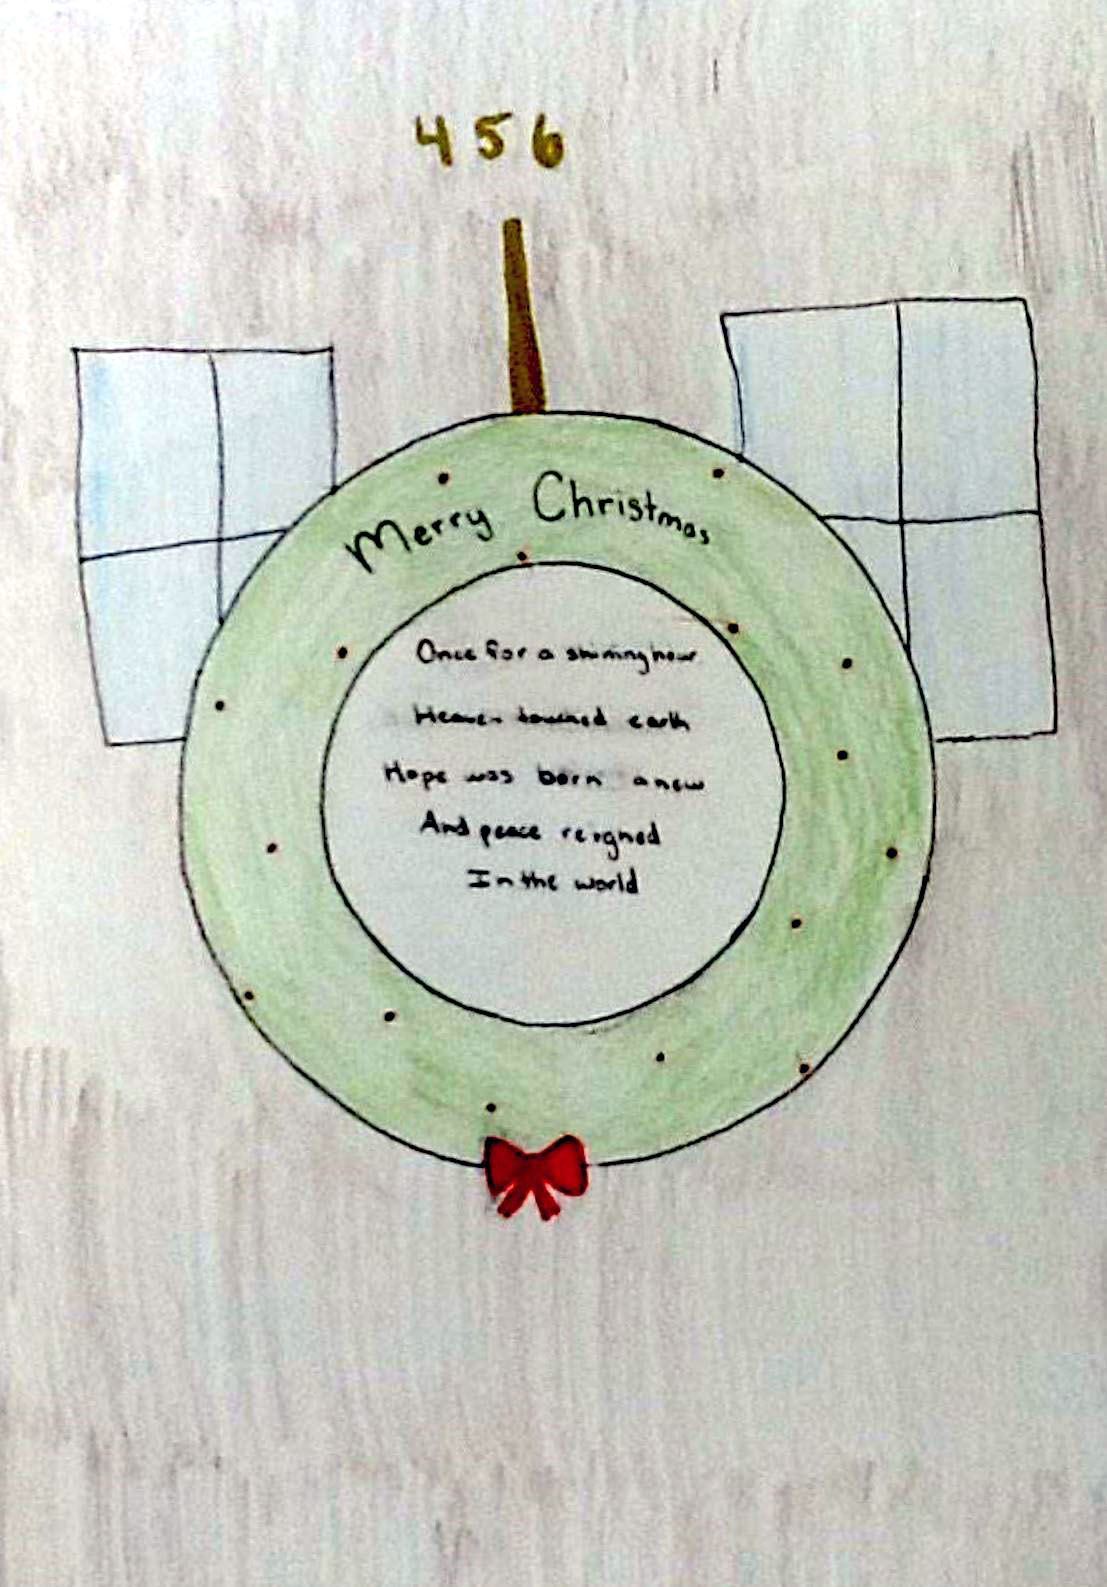 456
Merry Christmas
Once for a shining hour
Heaven touched earth
Hope was born anew
And peace reigned
In the world